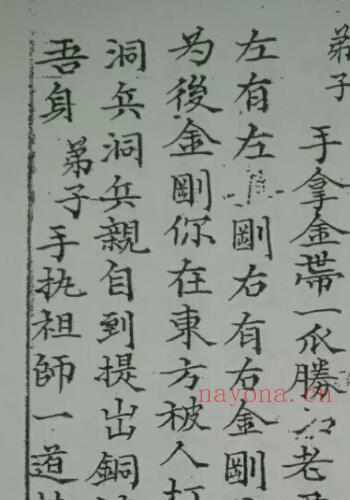 弟子
手拿金帶一爪勝
老
左有左剛右有右金剛
为後金剛你在東方被人打
洞兵洞兵親自到提出銅
吾身
弟子
手执祖師一道
nayona.cn